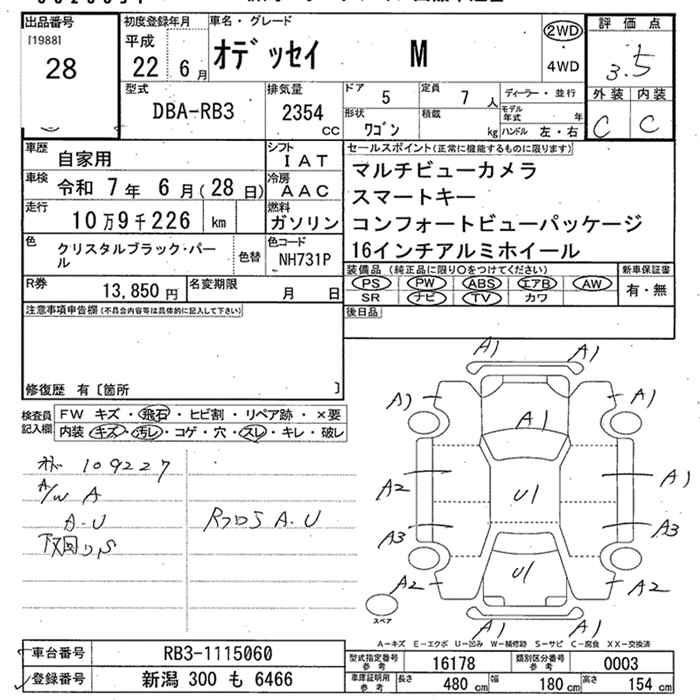 出品番号
[1988]
28
初度登録年月
平成
22 年 6 月
車名・グレード
オデッセイ M
2WD
・
4WD
評価点
3.5
外装 内装
C C
型式
DBA-RB3
排気量
2354
CC
ドア 5
定員 7 人
形状 ワゴン
積載 kg
ディーラー・並行
モデル年式 年
ハンドル 左・右
車歴 自家用
シフト IAT
車検 令和 7 年 6 月(28 日)
冷房 AAC
走行 10 万 9 千 226 km
燃料 ガソリン
色 クリスタルブラック・パール
色替
色コード NH731P
R券 13,850 円
名変期限 月 日
セールスポイント(正常に機能するものに限ります)
マルチビューカメラ
スマートキー
コンフォートビューパッケージ
16インチアルミホイール
装備品(純正品に限り○をつけてください)
PS PW ABS エアB AW
SR ナビ TV カワ
新車保証書
有・無
後日品
注意事項申告欄(不具合内容等は具体的に記入して下さい)
修復歴 有〔箇所 〕
検査員記入欄
FW キズ・飛石・ヒビ割・リペア跡・×要
内装 キズ・汚レ・コゲ・穴・スレ・キレ・破レ
109227
A/W A
A・U
A・U
A1 A1
A1 A1
A1
A2 A1
U1
A3 A3
U1
A2 A2
A1 A1
スペア
A-キズ E-エクボ U-凹み W-補修跡 S-サビ C-腐食 XX-交換済
車台番号 RB3-1115060
登録番号 新潟 300 も 6466
型式指定番号 参考 16178
類別区分番号 参考 0003
車庫証明用 参考 長さ 480 cm 幅 180 cm 高さ 154 cm